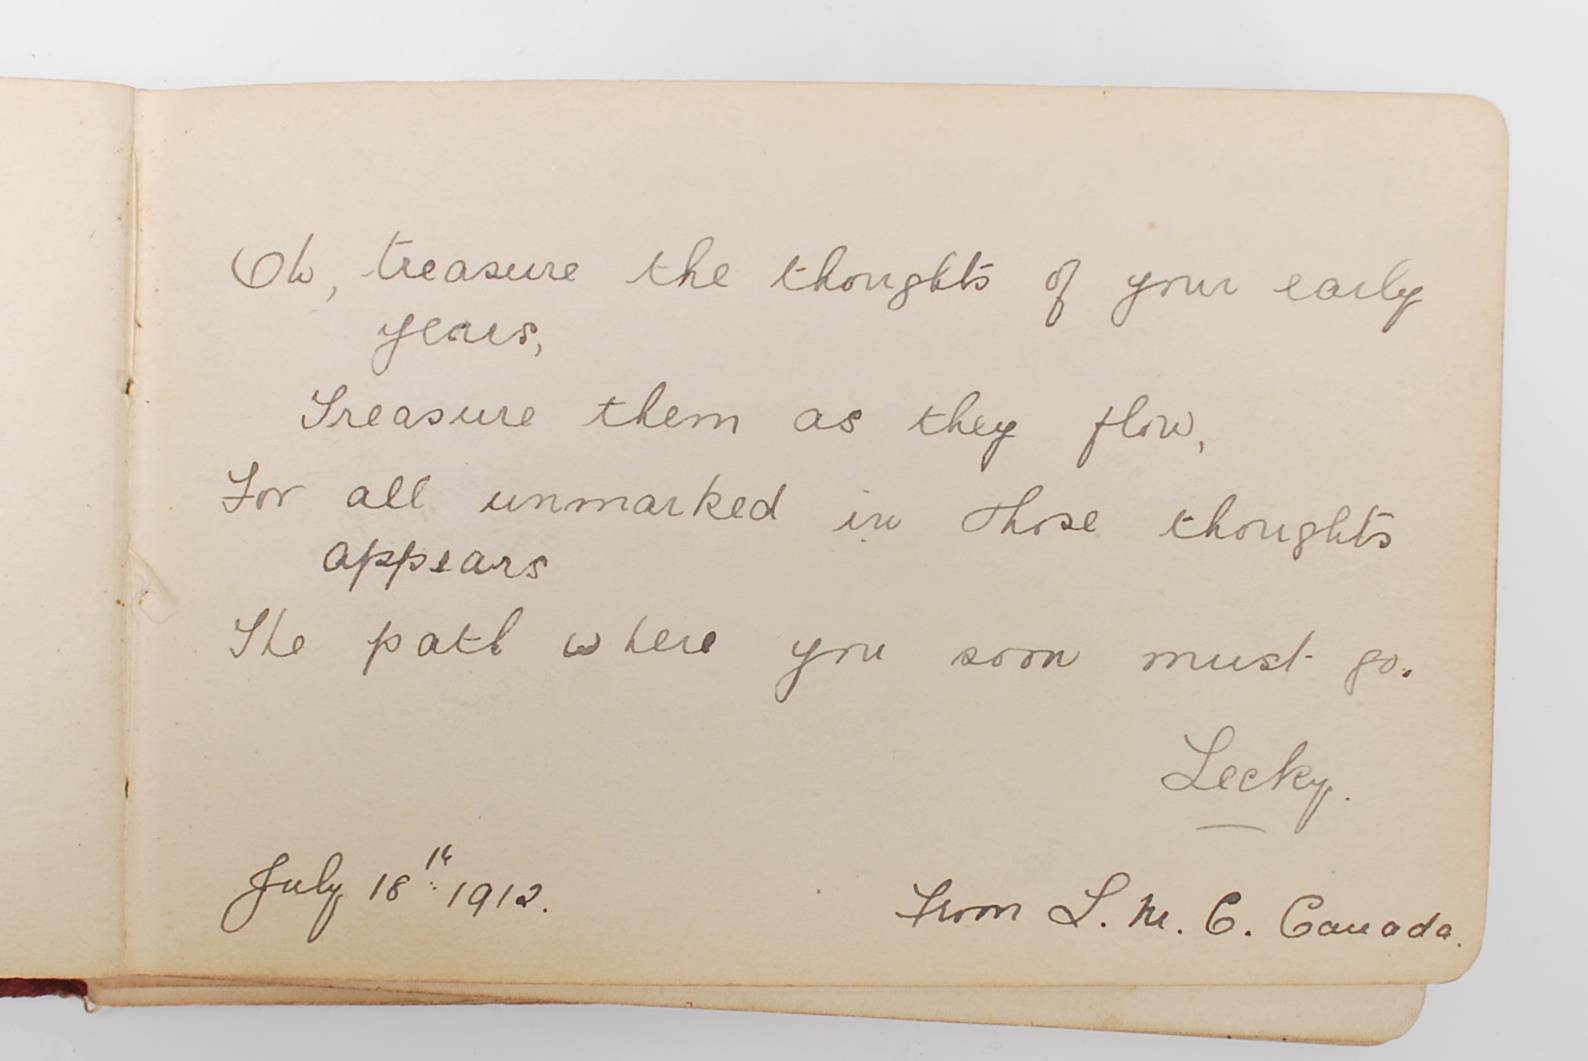 Oh, treasure the thoughts of your early
years,
Treasure them as they flow,
For all unmarked in those thoughts
appears
The path where you soon must go.
Lecky.
July 18th 1912.
From L. M. C. Canada.